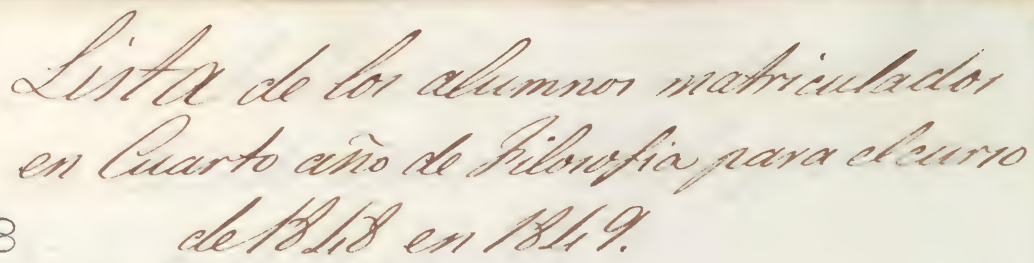 Lista de los alumnos matriculados
en Cuarto año de Filosofia para el curso
de 1848 en 1849.